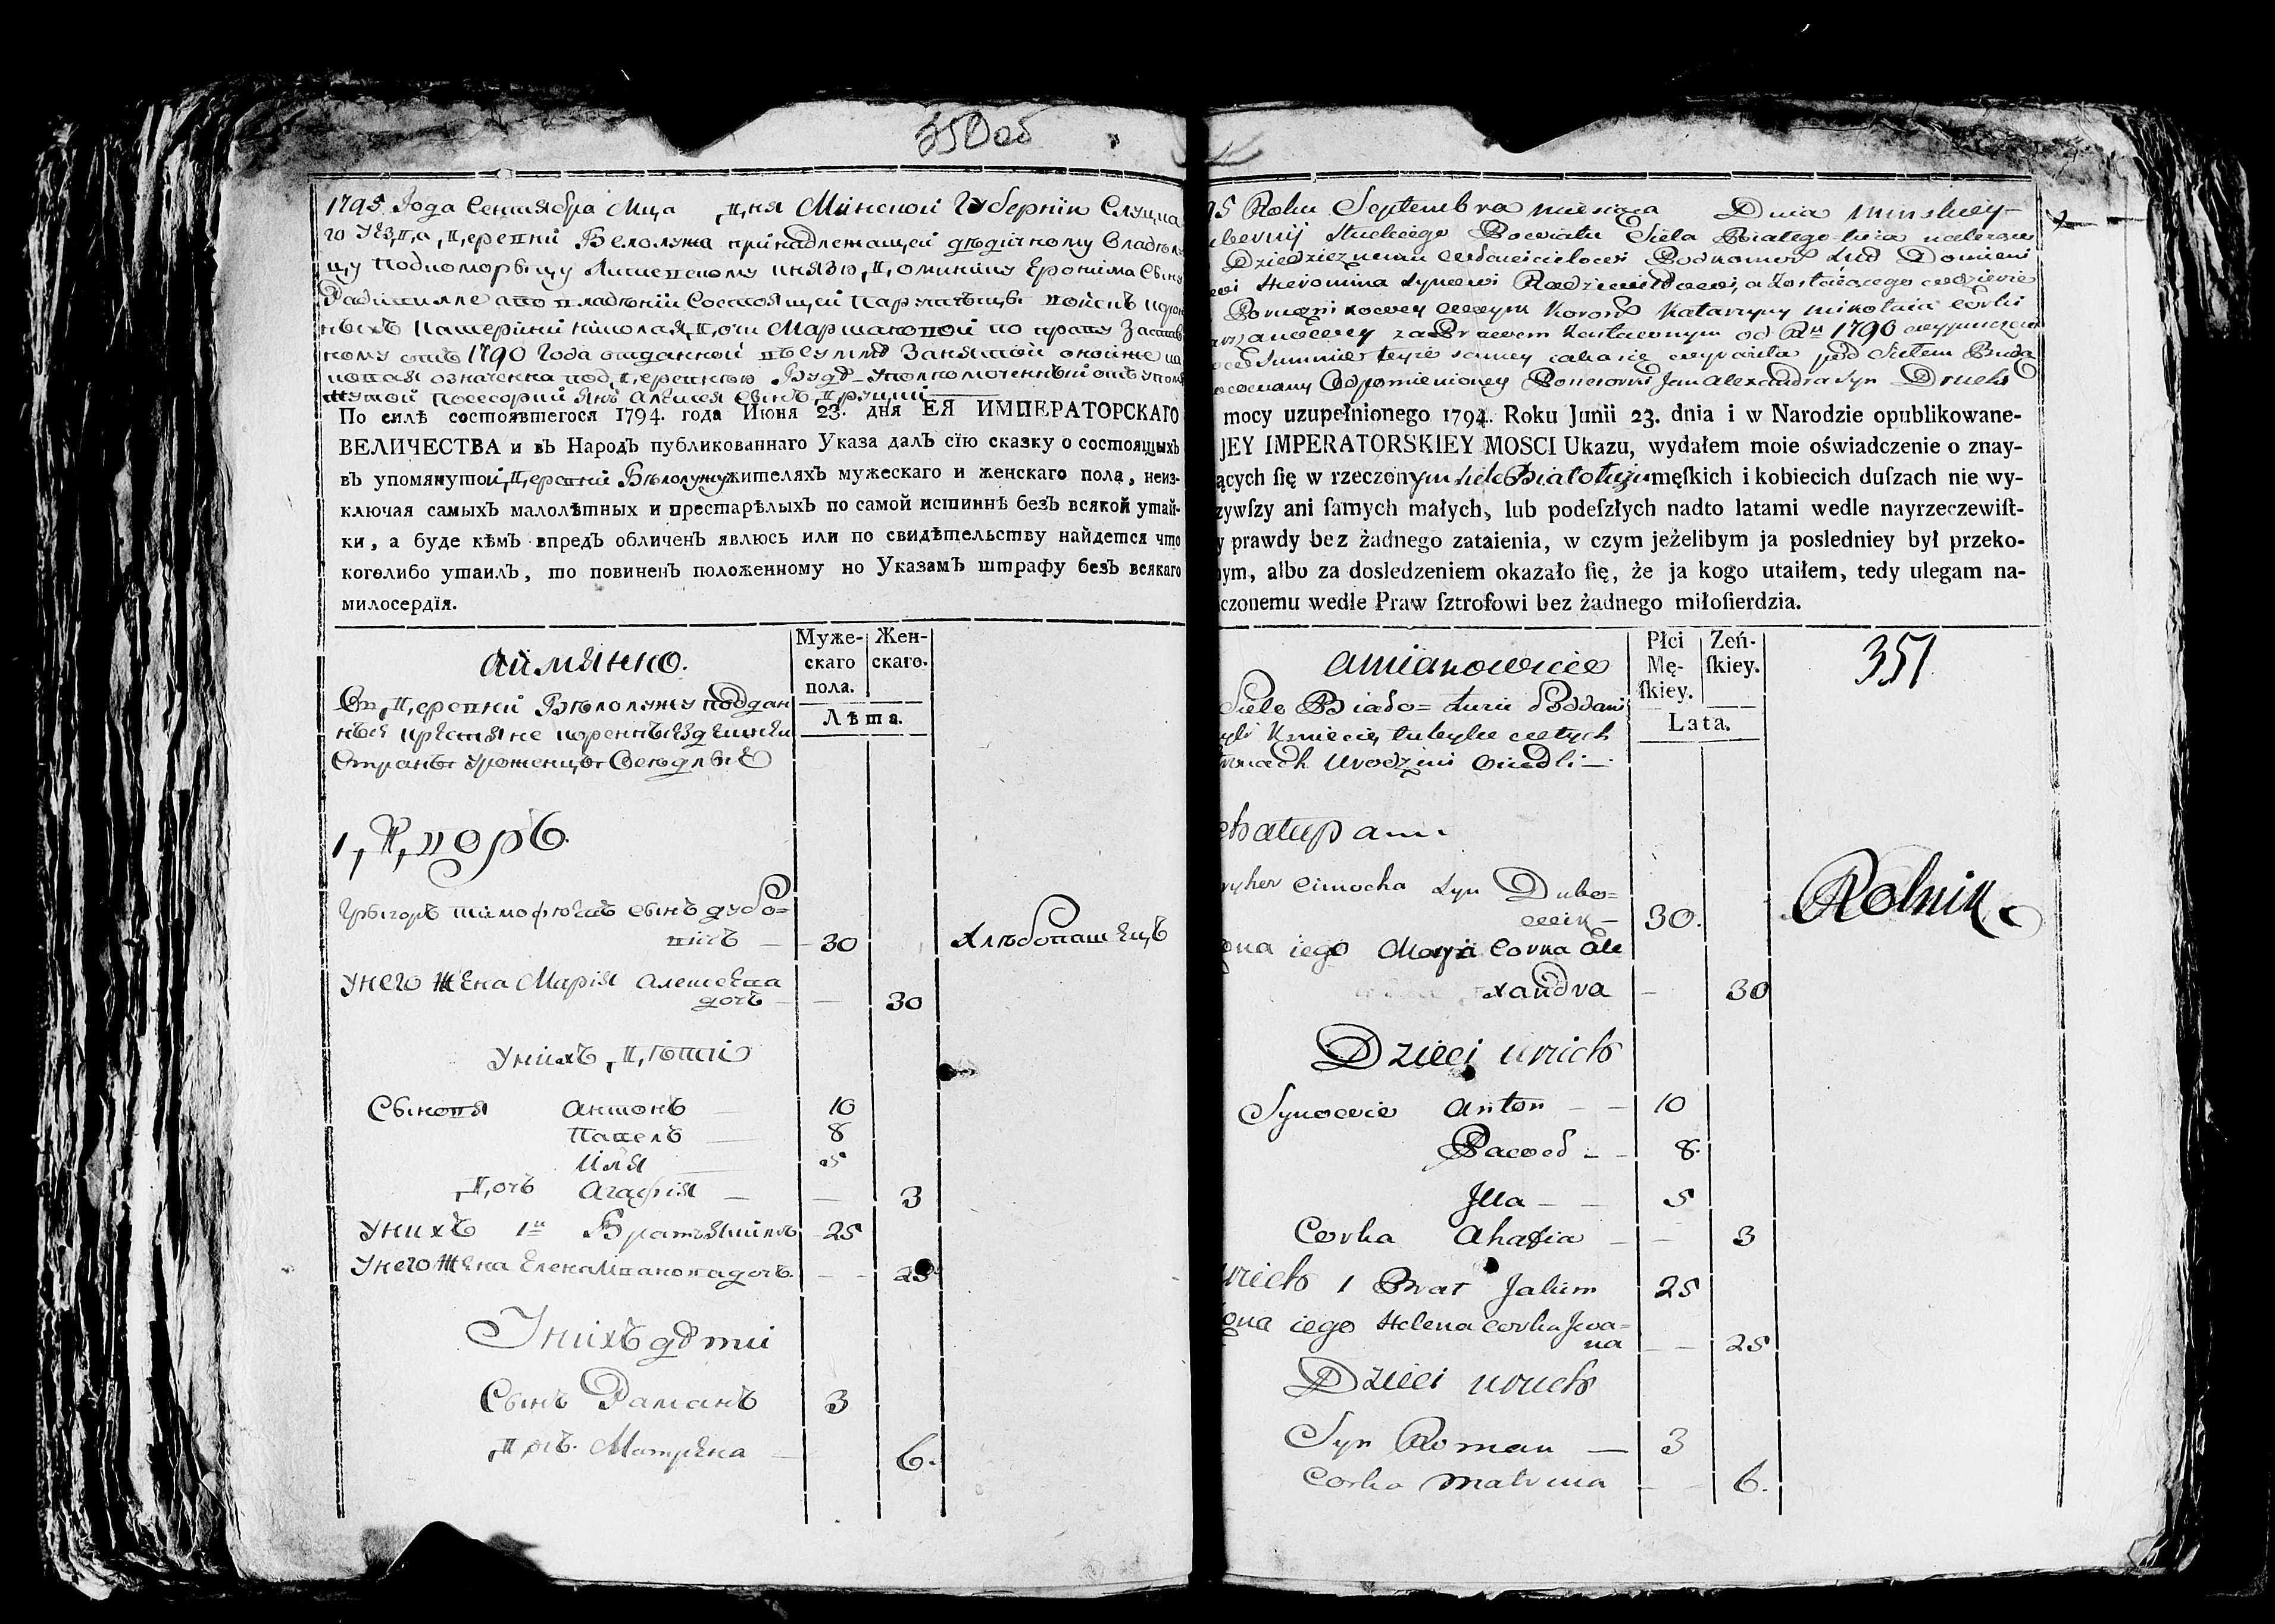 350об
1795 Года Сентября Мца дня Минской Губернiи Слуцка
го Уѣзда деревни Белолужа принадлежащей дѣдичному Владѣль
цу Подкоморыцу Литовскому князю Доминику Еронима Сыну
ныхъ Катерины Николая дочи по праву Застав
ному отъ 1790 Года
По силѣ состоявшегося 1794. года Июня 23. дня ЕЯ ИМПЕРАТОРСКАГО
ВЕЛИЧЕСТВА и въ Народъ публикованнаго Указа далъ сїю сказку о состоящыхъ
въ упомянутой деревни Бѣлолужу жителяхъ мужескаго и женскаго пола, неиз-
ключая самыхъ малолѣтныхъ и престарѣлыхъ по самой истиннѣ безъ всякой утай-
ки, а буде кѣмъ впредъ обличенъ явлюсь или по свидѣтельству найдется что
коголибо утаилъ, то повиненъ положенному по Указамъ штрафу безъ всякаго
милосердїя.
аимянно.
Муже-
скаго
пола.
Жен-
скаго.
Лѣта.
Въ деревни Бѣлолужу поддан
ныя крестяне коренные здешней
Страны Уроженцы
1, Дворъ.
Грыгоръ Тимофѣевъ сынъ Дубо=
викъ — 30 Хлѣбопашецъ
У него жена Марiя Алексеева
дочъ — 30
У нихъ дѣти
Сыновя Антонъ — 10
Павелъ — 8
Илья — 5
дочъ Агафiя — 3
У нихъ 1й Братъ Якимъ 25
У него жена Елена Иванова дочъ. 25
У нихъ дѣти
Сынъ Раманъ 3
дочъ. Матрена — 6.
95 Roku Septembra miesiąca Dnia Minskiey
bernij Słuckiego Powiatu Sieła Białego
Dziedzicznemu Podkomor Lit Domini
owi Hieronima synowi Radziwiłłowi, a zostaiącego
Katarzyny Mikołaia Corki
za Prawem Zastawnym od Ru 1790
summie teyże samey pod Siełem Buda
Jan Alexandra syn Drucki
mocy uzupełnionego 1794. Roku Junii 23. dnia i w Narodzie opublikowane-
JEY IMPERATORSKIEY MOSCI Ukazu, wydałem moie oświadczenie o znay-
ących ſię w rzeczonym siele Białołużu męſkich i kobiecich duſzach nie wy-
zywſzy ani ſamych małych, lub podeſzłych nadto latami wedle nayrzeczewiſt-
y prawdy bez żadnego zataienia, w czym jeżelibym ja posledniey był przeko-
ym, albo za dosledzeniem okazało ſię, że ja kogo utaiłem, tedy ulegam na-
czonemu wedle Praw ſztrofowi bez żadnego miłoſierdzia.
amianowicie
Płci
Mę-
ſkiey.
Zeń-
ſkiey.
Lata.
351
Siele Biało=łużu Poddani
Kmiecie tuteyke
Urodzeni Osiedli —
chałupami
ryher Cimocha syn Dubo=
wik — 30. Rolnik
ona iego Marya Corka Ale
xandra — 30
Dzieci u nich
Synowie Anton — 10
Paweł — 8.
Jlla — 5
Corka Ahafia — 3
nich 1 Brat Jakim 25
ona iego Helena corka Jwa=
na — 25
Dzieci u nich
Syn Roman — 3
Corka Matruna — 6.